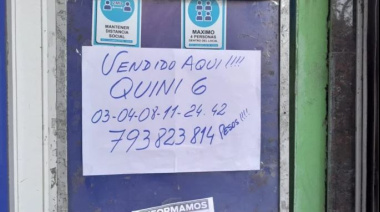 MANTENER
DISTANCIA
SOCIAL
MAXIMO
4 PERSONAS
DENTRO DEL LOCAL
VENDIDO AQUI!!!!
QUINI 6
03-04-08-11-24-42
793823814 PESOS!!!!
FORMAMOS